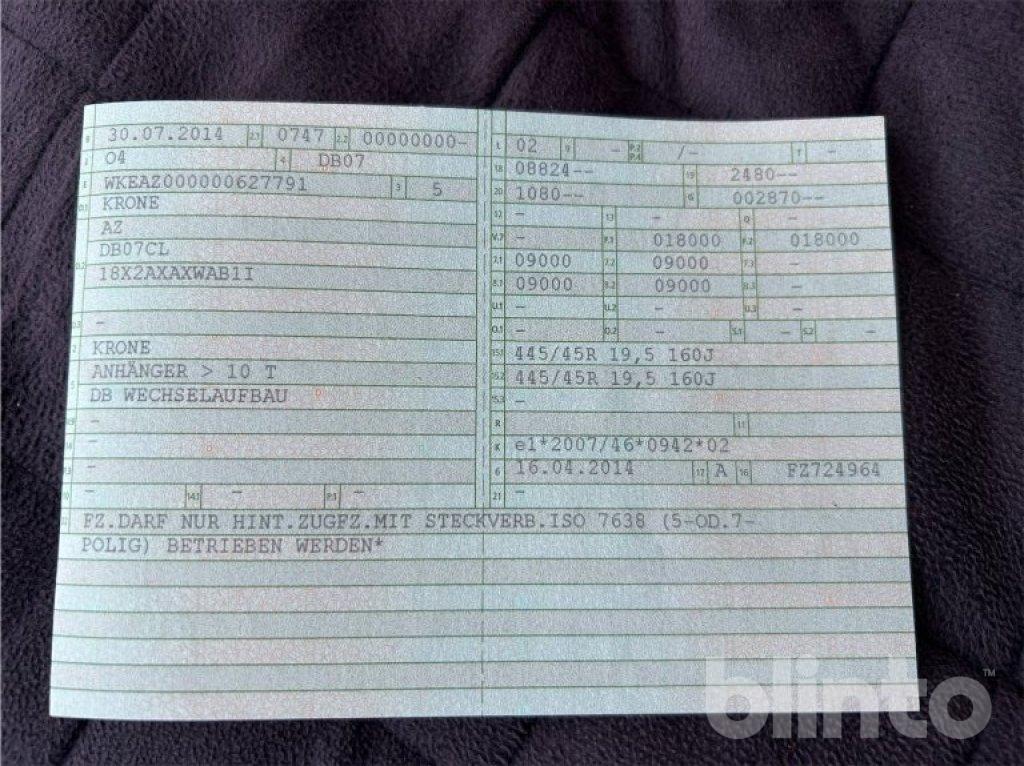 B 30.07.2014 2.1 0747 2.2 00000000-
J 04 4 DB07
E WKEAZ000000627791 3 5
D.1 KRONE
AZ
D.2 DB07CL
18X2AXAXWAB1I
D.3 -
2 KRONE
5 ANHÄNGER > 10 T
DB WECHSELAUFBAU
-
-
-
- 14.1 - P.3 -
L 02 9 - P.2 P.4 /- T -
18 08824-- 19 2480--
20 1080-- G 002870--
12 - 13 - Q -
V.7 - F.1 018000 F.2 018000
7.1 09000 7.2 09000 7.3 -
8.1 09000 8.2 09000 8.3 -
U.1 - U.2 - U.3 -
O.1 - O.2 - S.1 - S.2 -
15.1 445/45R 19,5 160J
15.2 445/45R 19,5 160J
15.3 -
R 11
K e1*2007/46*0942*02
6 16.04.2014 17 A 16 FZ724964
21 -
22 FZ.DARF NUR HINT.ZUGFZ.MIT STECKVERB.ISO 7638 (5-OD.7-
POLIG) BETRIEBEN WERDEN*
blinto™